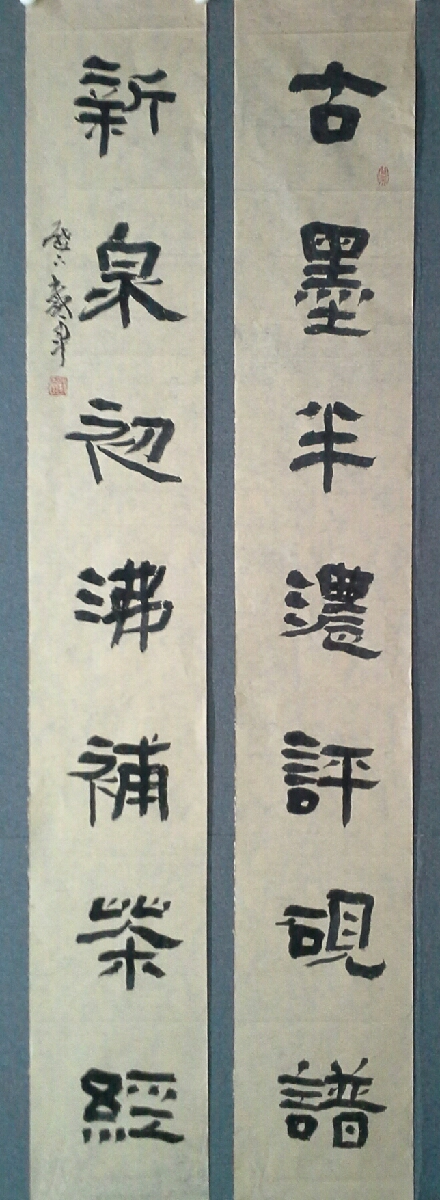 古墨半濃評硯譜
新泉初沸補茶經